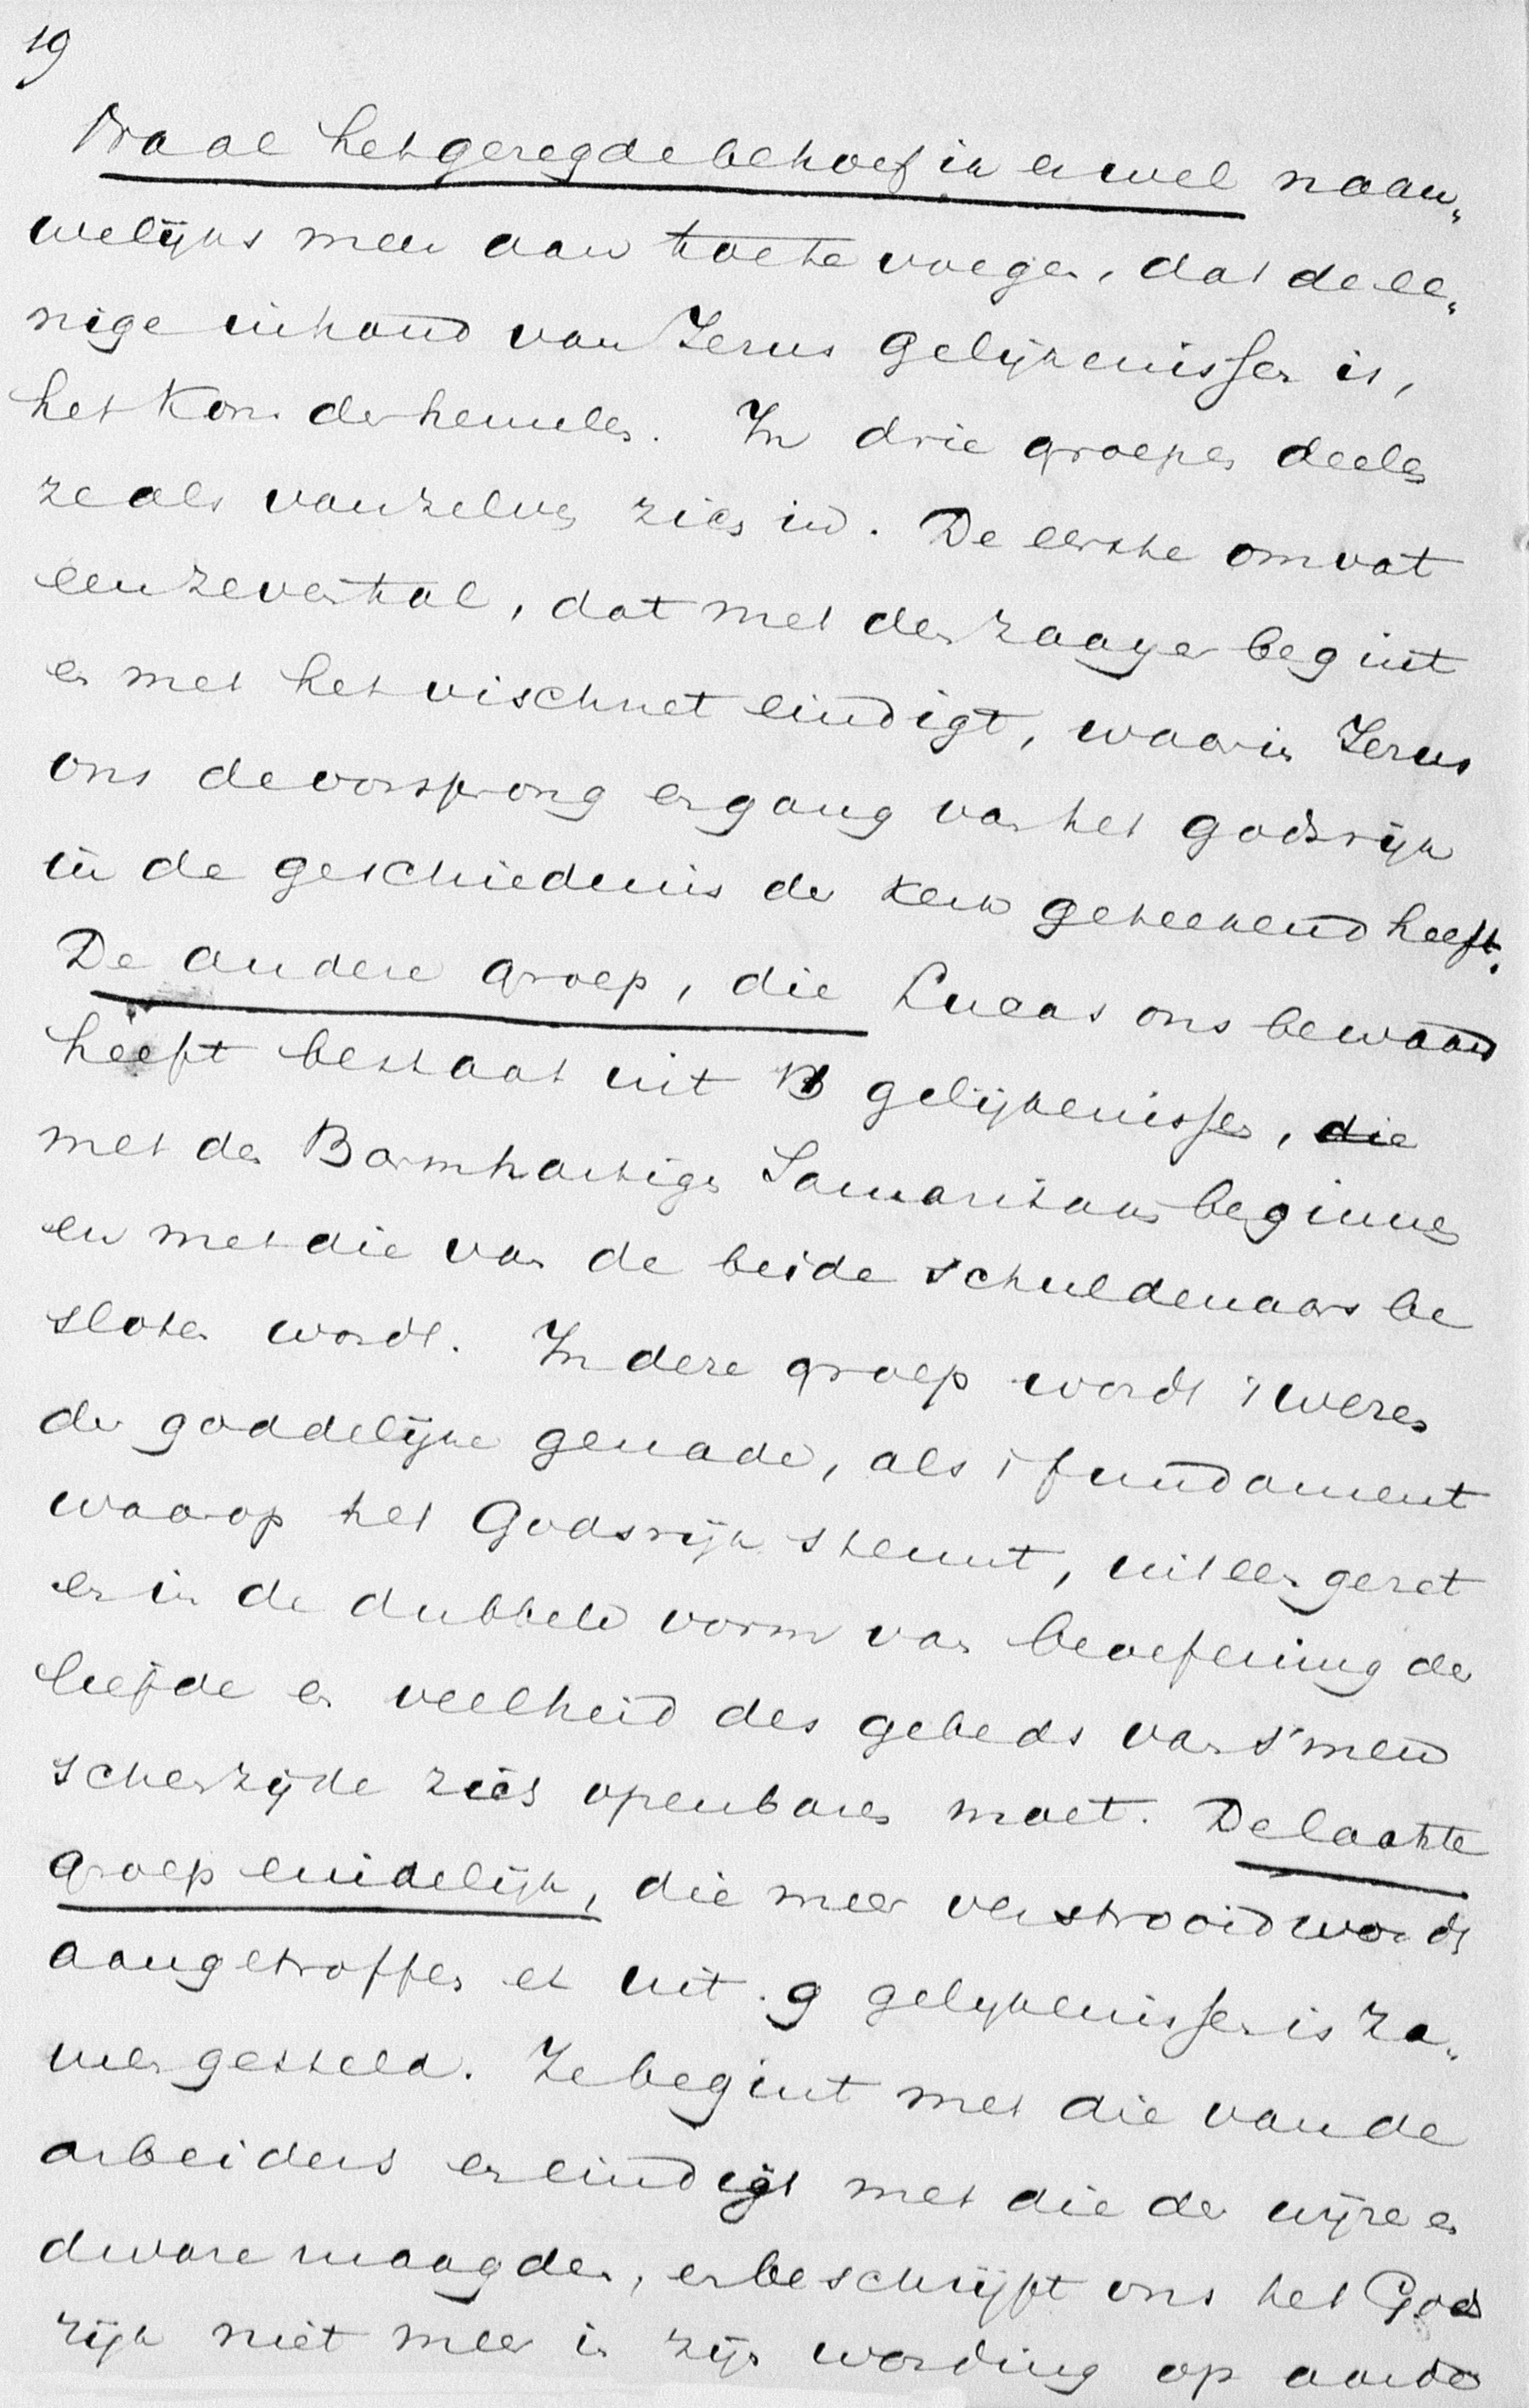 19
Na al het gezegde behoef ik er wel naau„
welijks meer aan toe te voegen, dat de ee„
nige inhoud van Jezus gelijkenissen is,
het Kon. der hemelen. In drie groepen deelen
ze als vanzelven zich in. De eerste omvat
een zevental, dat met den zaayer begint
en met het vischnet eindigt, waarin Jezus
ons de oorsprong en gang van het godsrijk
in de geschiedenis der Kerk geteekend heeft.
De andere groep, die Lucas ons bewaard
heeft bestaat uit 13 gelijkenissen, die
met den Barmhartigen Samaritaan beginnen
en met die van de beide schuldenaars be
sloten wordt. In deze groep wordt 't wezen
der goddelijke genade, als 't fundament
waarop het Godsrijk steunt, uiteen gezet
en in de dubbele vorm van beoefening der
liefde en veelheid des gebeds van s'men
schenzijde zich openbaren moet. De laatste
groep eindelijk, die meer verstrooid wordt
aangetroffen et uit 9 gelijkenissen is za„
mengesteld. Ze begint met die van de
arbeiders en eindigt met die der wijze en
dwaze maagden, en beschrijft ons het Gods
rijk niet meer in zijn wording op aarde